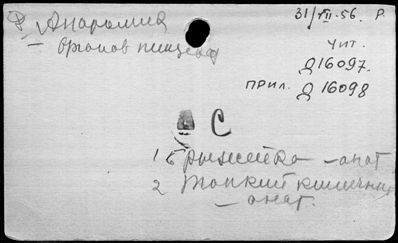 31/VII-56. Р.
Р, Анатомия
– Органов пищева
чит.
Д16097.
прил. Д 16098
С
1 Брыжейка – анат
2 Тонкий кишечник
– анат.